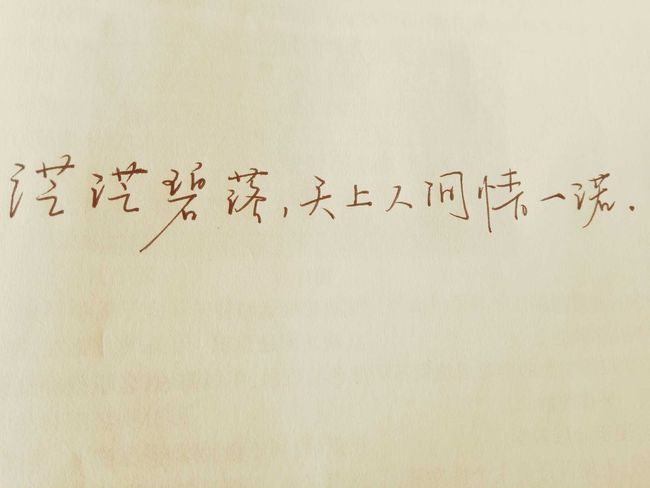 茫茫碧落,天上人间情一诺.